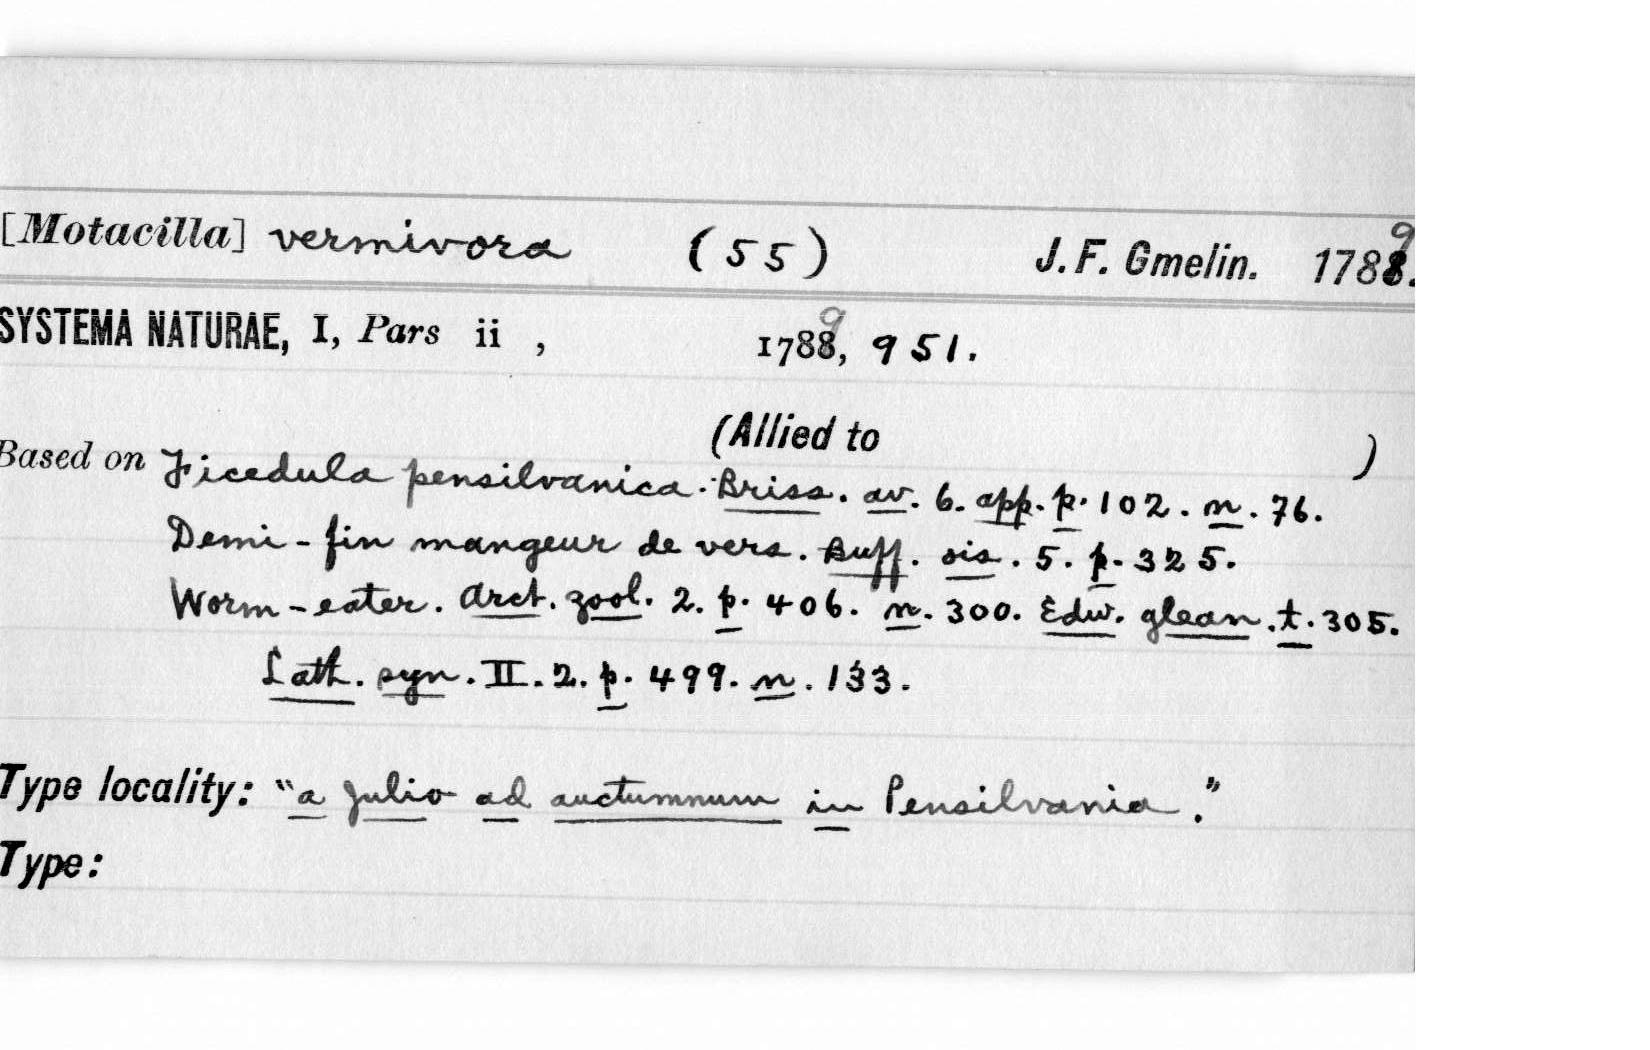 [Motacilla] vermivora (55) J. F. Gmelin. 1789.
SYSTEMA NATURAE, I, Pars ii , 1789, 951.
(Allied to )
Based on Ficedula pensilvanica. Briss. av. 6. app. p. 102. n. 76.
Demi-fin mangeur de vers. Buff. ois. 5. p. 325.
Worm-eater. Arct. zool. 2. p. 406. n. 300. Edw. glean. t. 305.
Lath. syn. II. 2. p. 499. n. 133.
Type locality: "a Julio ad auctumnum in Pensilvania."
Type: